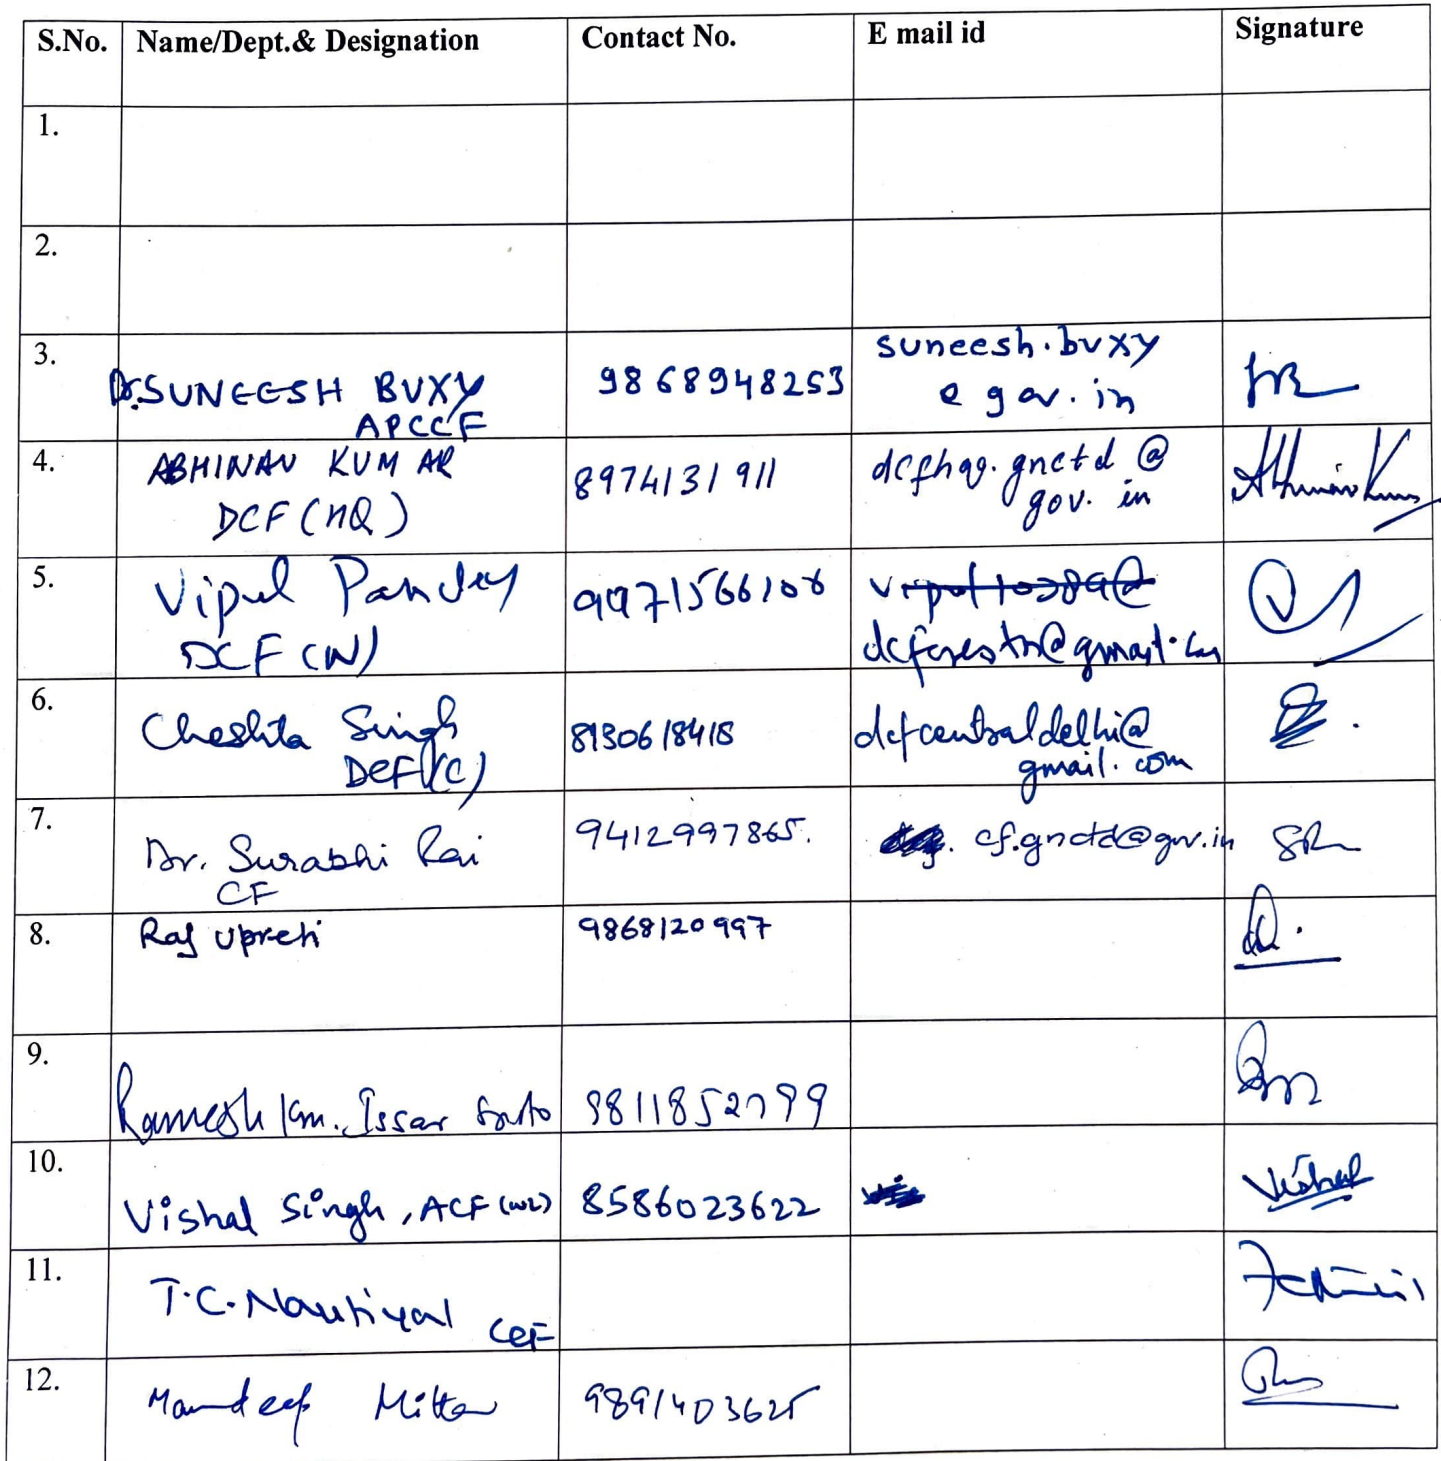 S.No. Name/Dept.& Designation Contact No. E mail id Signature
1.
2.
3. Dr. SUNEESH BUXY 9868948253 suneesh.buxy
APCCF @ gov.in
4. ABHINAV KUMAR 8974131911 dcfhq.gnctd @
DCF (HQ) gov.in
5. Vipul Pandey 9971566106
DCF (W) @gmail.com
6. Cheshta Singh 8130618418 dcfcentraldelhi@
DCF (C) gmail.com
7. Dr. Surabhi Rai 9412997865. cf.gnctd@gov.in SR
CF
8. Raj Upreti 9868120997
9. Ramesh Km. Issar 9811852799
10. Vishal Singh, ACF (WL) 8586023622 Vishal
11. T.C. Nautiyal
CCF
12. Mandeep Mitter 9891403625